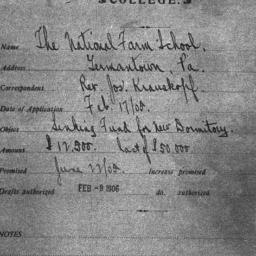 COLLEGE.
Name The National Farm School.
Address Germantown Pa.
Correspondent Rev. Jos. Krauskopf.
Date of Application Feb 17/05.
Object Sinking Fund for New Dormitory.
Amount $12,500. last of $50,000
Promised June 22/05. Increase promised
Drafts authorized FEB -9 1906 do. authorized
NOTES